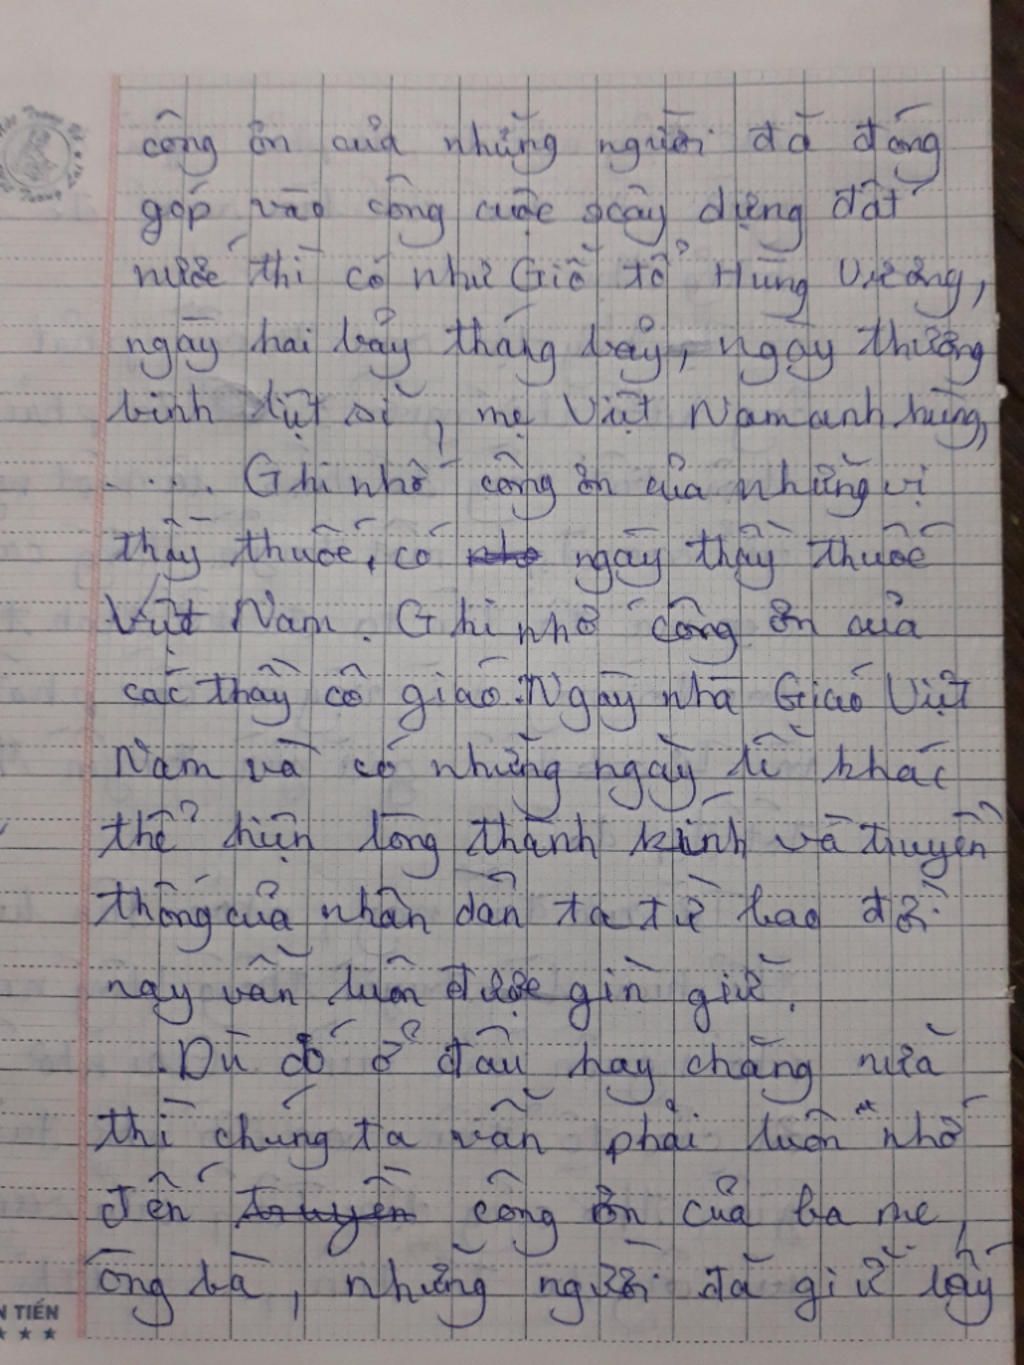 công ơn của những người đã đóng
góp vào công cuộc xây dựng đất
nước thì có như Giỗ tổ Hùng Vương,
ngày hai bảy tháng bảy, ngày thương
binh liệt sĩ, mẹ Việt Nam anh hùng,
..... Ghi nhớ công ơn của những vị
thầy thuốc, có ngày thầy thuốc
Việt Nam. Ghi nhớ công ơn của
các thầy cô giáo. Ngày nhà Giáo Việt
Nam và có những ngày lễ khác
thể hiện lòng thành kính và truyền
thống của nhân dân ta từ bao đời
nay vẫn luôn được gìn giữ.
Dù có ở đâu hay chăng nữa
thì chúng ta vẫn phải luôn nhớ
đến truyền công ơn của ba mẹ,
ông bà, những người đã giữ lấy
N TIẾN